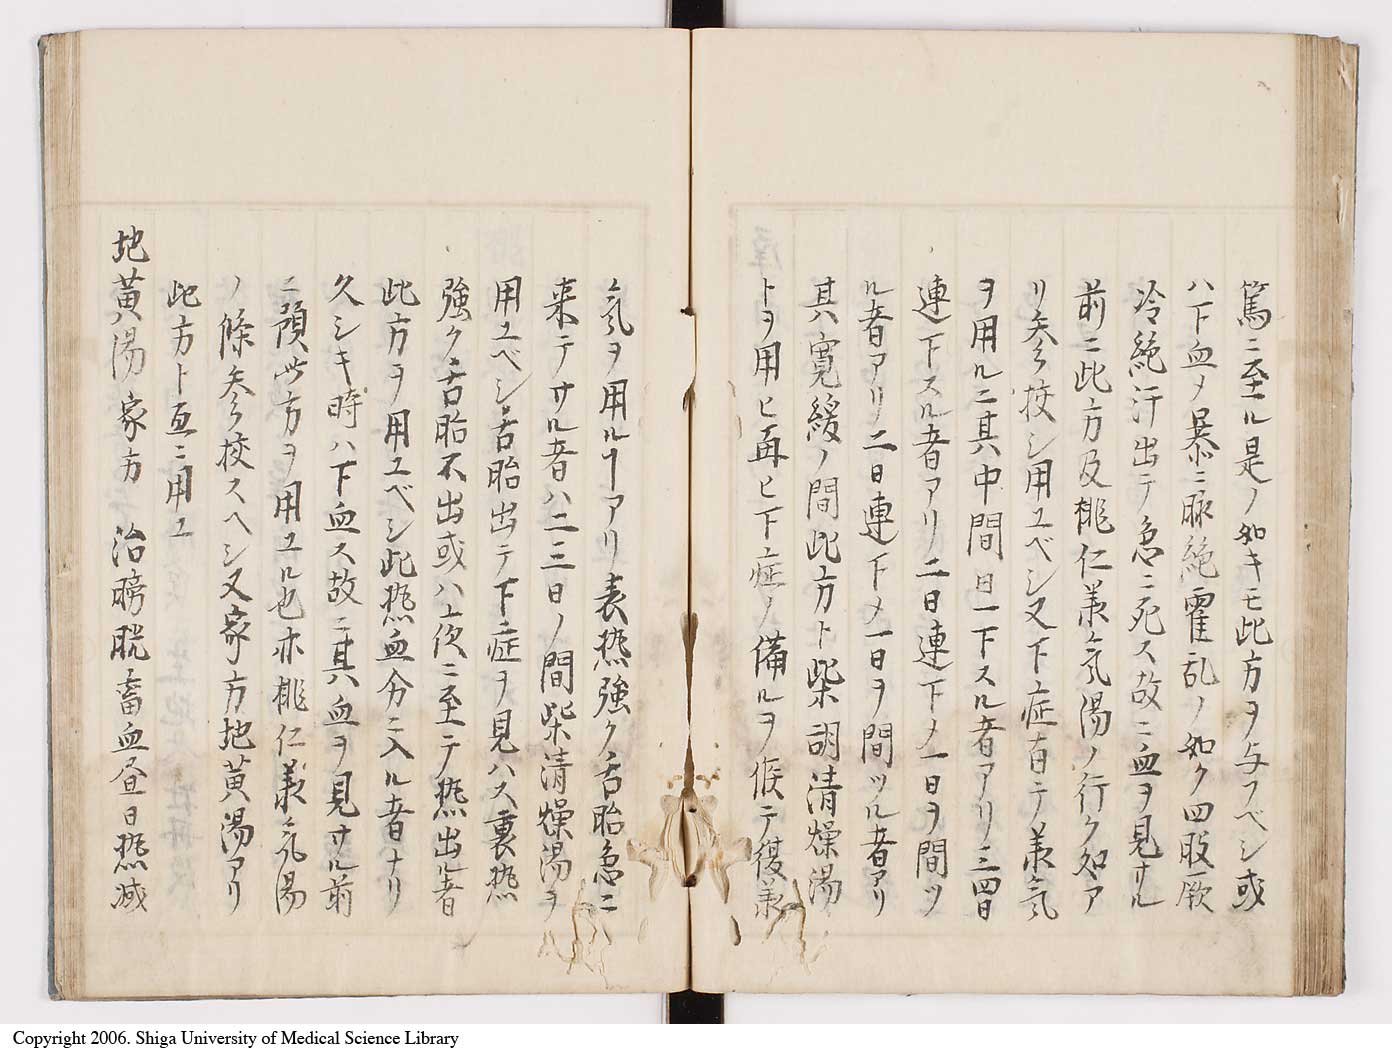 篤ニ至ル是ノ如キモ此方ヲ与フベシ或
ハ下血ノ暴ニ脉絶霍乱ノ如ク四肢厥
冷絶汗出テ急ニ死ス故ニ血ヲ見サル
前ニ此方及桃仁義氣湯ノ行ク処ア
リ参考校シ用ユベシ又下症有テ義氣
ヲ用ルニ其中間日一下スル者アリ三四日
連下スル者アリ二日連下メ一日ヲ間ツ
ル者アリ二日連下メ一日ヲ間ツル者アリ
其寛緩ノ間此方ト柴胡清燥湯
トヲ用ヒ再ヒ下症ノ備ルヲ候テ復義
氣ヲ用ルヿアリ表热強ク舌胎急ニ
来テサル者ハ二三日ノ間柴清燥湯ヲ
用ユベシ舌胎出テ下症ヲ見ハス裏热
強ク舌胎不出或ハ上伩ニ至テ热出ル者
此方ヲ用ユベシ此热血分ニ入ル者ナリ
久シキ時ハ下血ス故ニ其血ヲ見サル前
ニ預此方ヲ用ユル也亦桃仁義氣湯
ノ條参考校スヘシ又家方地黄湯アリ
此方ト互ニ用ユ
地黄湯家方 治膀胱畜血昼日热减
Copyright 2006. Shiga University of Medical Science Library